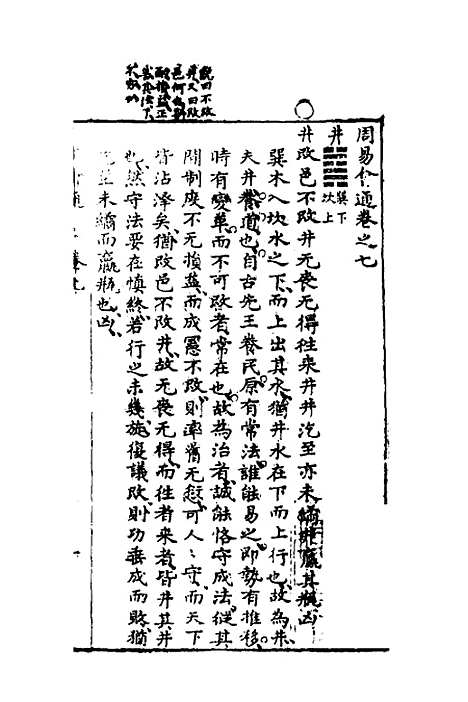 周易會通卷之七
井 巽下 坎上
井改邑不改井无喪无得往來井井汔至亦未繘井羸其瓶凶
巽木入坎水之下而上出其水猶井水在下而上行也故為井
夫井養道也自古先王養民原有常法誰能易之即勢有推移
時有變革而不可改者常在也故為治者誠能恪守成法縱其
間制度不无損益而成憲不改則率舊无愆可人人守而天下
皆沾澤矣猶改邑不改井故无喪无得而往者來者皆井其井
也然守法要在慎終若行之未幾旋復議改則功垂成而敗猶
汔至未繘而羸瓶也凶
既曰不改
井又曰改
邑何也